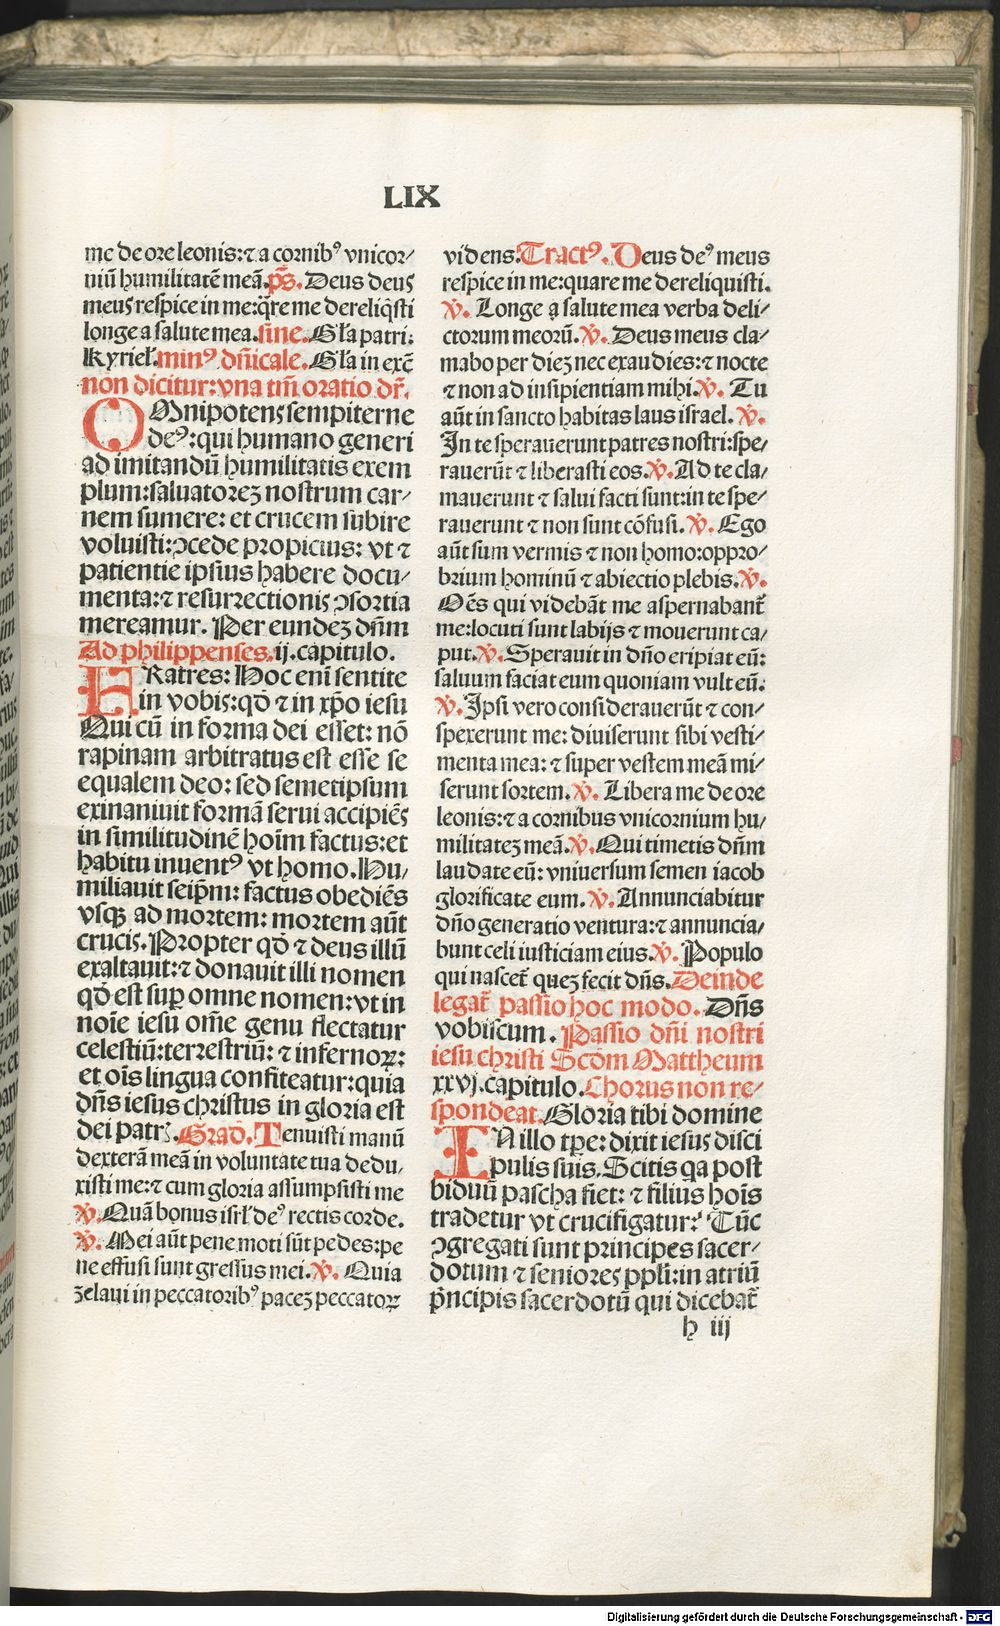 LIX
me de ore leonis: ⁊ a cornibꝰ vnicor⸗
niū humilitatē meā. p̄s. Deus deus
meus respice in me: q̄re me dereliq̄sti
longe a salute mea. sine. Gl̓a patri:
Kyriel̓. minꝰ dn̄icale. Gl̓a in exc̄
non dicitur: vna tm̄ oratio dr̄.
OMnipotens sempiterne
deꝰ: qui humano generi
ad imitandū humilitatis exem
plum: saluatoreꝫ nostrum car⸗
nem sumere: et crucem subire
voluisti: ꝯcede propicius: vt ⁊
patientie ipsius habere docu⸗
menta: ⁊ resurrectionis ꝯsortia
mereamur. Per eundeꝫ dn̄m
Ad philippenses. ij. capitulo.
FRatres: Hoc eni̅ sentite
in vobis: qd̓ ⁊ in xp̄o iesu
Qui cū in forma dei esset: nō
rapinam arbitratus est esse se
equalem deo: sed semetipsum
exinaniuit formā serui accipiēs
in similitudinē hoīm factus: et
habitu inuentꝰ vt homo. Hu⸗
miliauit seip̄m: factus obediēs
vsqꝫ ad mortem: mortem aūt
crucis. Propter qd̓ ⁊ deus illū
exaltauit: ⁊ donauit illi nomen
qd̓ est sup̄ omne nomen: vt in
noīe iesu om̄e genu flectatur
celestiū: terrestriū: ⁊ infernoꝝ:
et oīs lingua confiteatur: quia
dn̄s iesus christus in gloria est
dei patr̄. Grad̓. Tenuisti manū
dexterā meā in voluntate tua dedu⸗
xisti me: ⁊ cum gloria assumpsisti me
℣. Quā bonus isrl̓ deꝰ rectis corde.
℣. Mei aūt pene moti sūt pedes: pe
ne effusi sunt gressus mei. ℣. Quia
zelaui in peccatoribꝰ paceꝫ peccatoꝝ
videns: Tractꝰ. Deus deꝰ meus
respice in me: quare me dereliquisti.
℣. Longe a salute mea verba deli⸗
ctorum meorū. ℣. Deus meus cla⸗
mabo per dieꝫ nec exaudies: ⁊ nocte
⁊ non ad insipientiam mihi. ℣. Tu
aūt in sancto habitas laus israel. ℣.
In te sperauerunt patres nostri: spe⸗
rauerūt ⁊ liberasti eos. ℣. Ad te cla⸗
mauerunt ⁊ salui facti sunt: in te spe⸗
rauerunt ⁊ non sunt cōfusi. ℣. Ego
aūt sum vermis ⁊ non homo: oppro⸗
brium hominū ⁊ abiectio plebis. ℣.
Oēs qui videbāt me aspernabant̄
me: locuti sunt labijs ⁊ mouerunt ca⸗
put. ℣. Sperauit in dn̄o eripiat eū:
saluum faciat eum quoniam vult eū.
℣. Ipsi vero considerauerūt ⁊ con⸗
spexerunt me: diuiserunt sibi vesti⸗
menta mea: ⁊ super vestem meā mi⸗
serunt sortem. ℣. Libera me de ore
leonis: ⁊ a cornibus vnicornium hu⸗
militateꝫ meā. ℣. Qui timetis dn̄m
laudate eū: vniuersum semen iacob
glorificate eum. ℣. Annunciabitur
dn̄o generatio ventura: ⁊ annuncia⸗
bunt celi iusticiam eius. ℣. Populo
qui nascet̄ queꝫ fecit dn̄s. Deinde
legat̄ passio hoc modo. Dn̄s
vobiscum. Passio dn̄i nostri
iesu christi Scd̓m Mattheum
xxvj. capitulo. Chorus non re⸗
spondeat. Gloria tibi domine
IN illo tp̄e: dixit iesus disci
pulis suis. Scitis qa post
biduū pascha fiet: ⁊ filius hoīs
tradetur vt crucifigatur: Tūc
ꝯgregati sunt principes sacer⸗
dotum ⁊ seniores pp̄li: in atriū
pn̄cipis sacerdotū qui dicebat̄
h iij
Digitalisierung gefördert durch die Deutsche Forschungsgemeinschaft - DFG